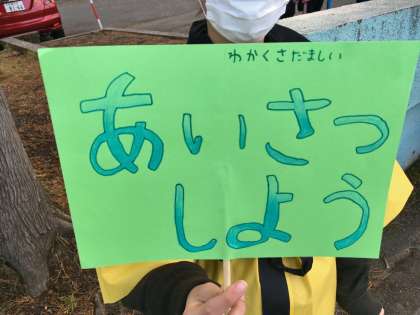 わかくさだましい
あいさつ
しよう